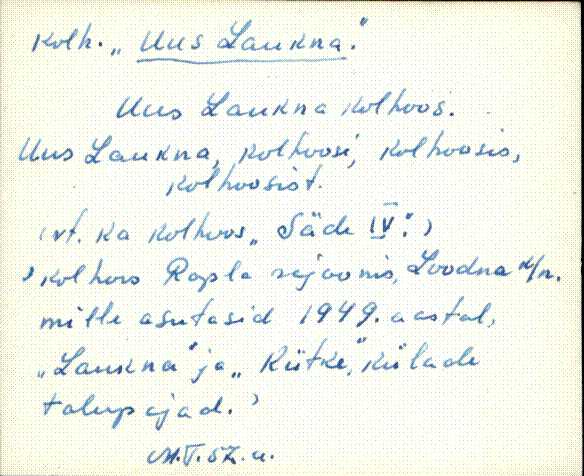 Kolh. „Uus Laukna."
Uus Laukna kolhoos.
Uus Laukna, kolhoosi, kolhoosis,
kolhoosist.
(vt. ka kolhoos „Säde IV".)
'kolhoos Rapla rajoonis, Loodna k/n.
mille asutasid 1949. aastal,
„Laukna" ja „Rütke", külade
talupojad.'